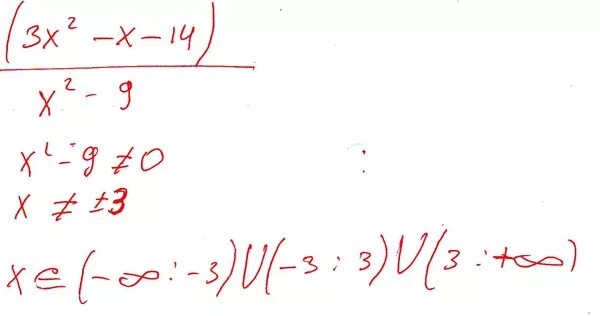 (3x² - x - 14)
x² - 9
x² - 9 ≠ 0
x ≠ ±3
x ∈ (-∞ : -3) U (-3 : 3) U (3 : +∞)